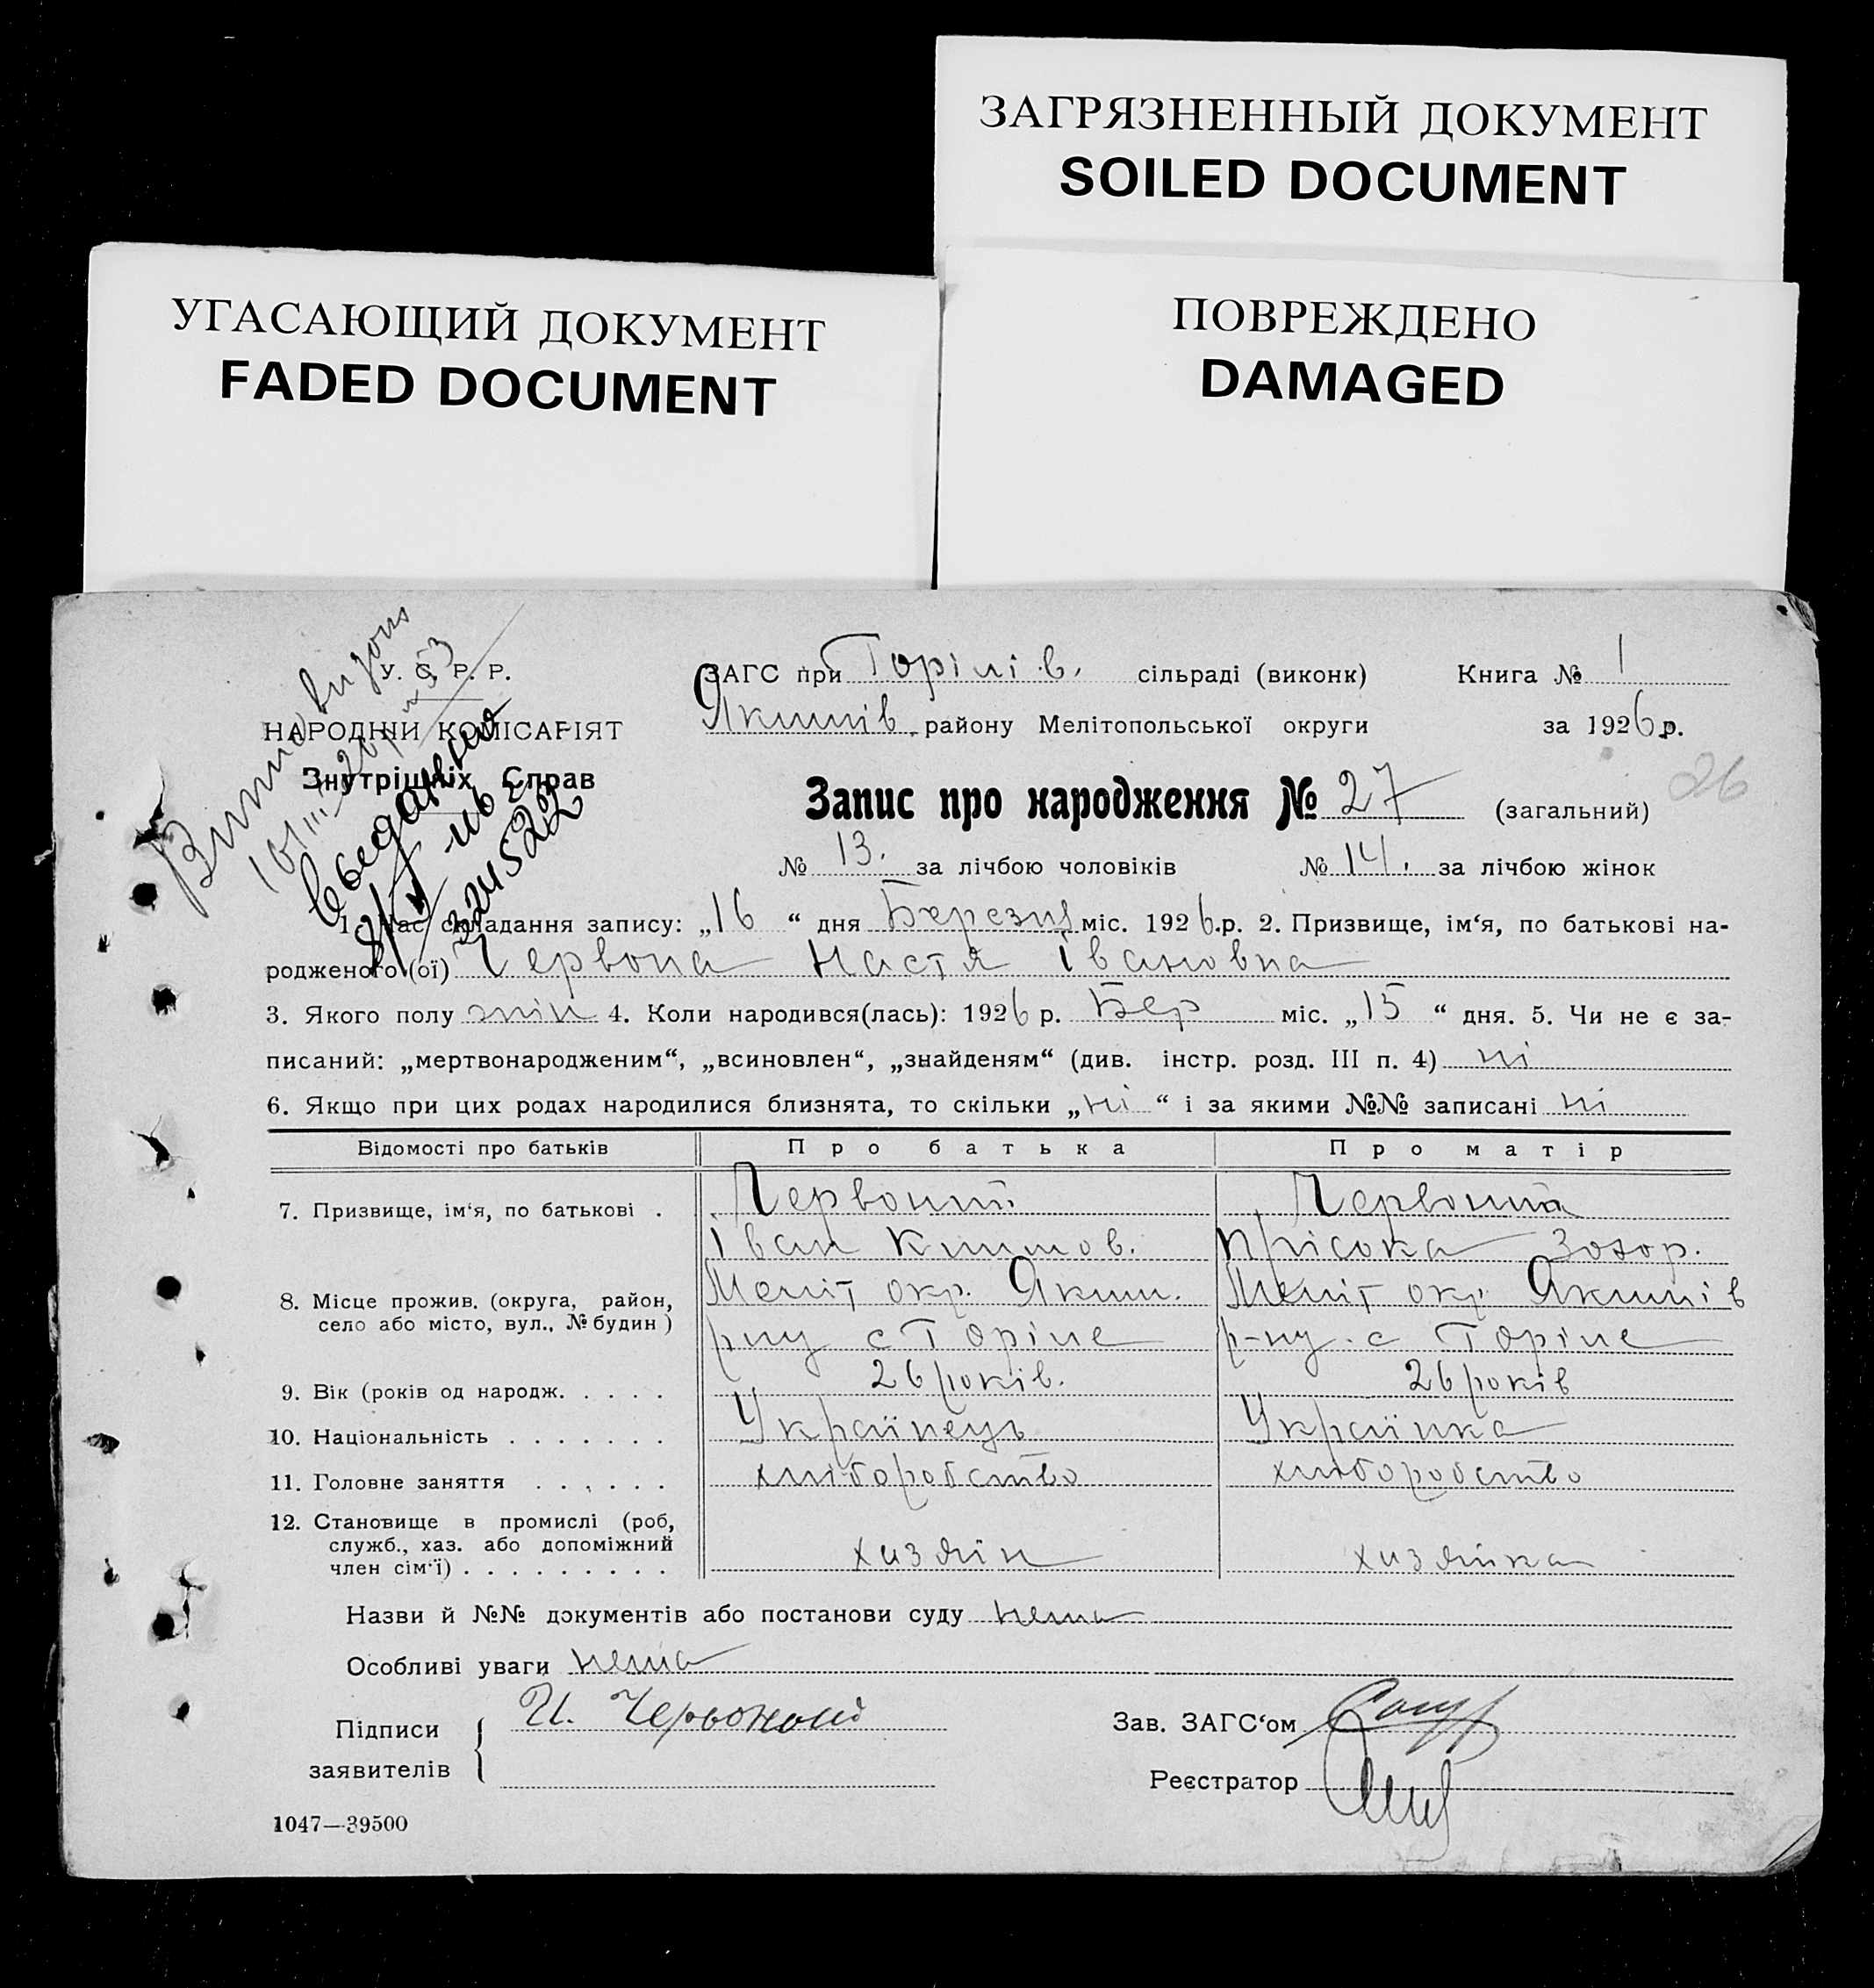 ЗАГРЯЗНЕННЫЙ ДОКУМЕНТ
SOILED DOCUMENT
УГАСАЮЩИЙ ДОКУМЕНТ
FADED DOCUMENT
ПОВРЕЖДЕНО
DAMAGED
У. С. Р. Р.
НАРОДНІЙ КОМІСАРІЯТ
Знутрішніх Справ
ЗАГС при Горілів. сільраді (виконк) Книга № 1
Якимів. району Мелітопольської округи за 1926 р.
26
Запис про народження № 27 (загальний)
№ 13. за лічбою чоловіків № 14. за лічбою жінок
1. Час складання запису: „16 “ дня Березня міс. 1926.р. 2. Призвище, ім‘я, по батькові на-
родженого (ої) Червона Настя Івановна
3. Якого полу жін 4. Коли народився(лась): 1926 р. Бер міс. „15 “ дня. 5. Чи не є за-
писаний: „мертвонародженим“, „всиновлен“, „знайденям“ (див. інстр. розд. III п. 4) ні
6. Якщо при цих родах народилися близнята, то скільки „ні“ і за якими №№ записані ні
Відомості про батьків Про батька Про матір
7. Призвище, ім‘я, по батькові . Червоний Червона
Іван Климов. Пріська Зохор.
8. Місце прожив. (округа, район, Меліт окр. Яким. Меліт окр. Якимів
село або місто, вул., № будин) рну с Горіле р-ну с Горіле
9. Вік (років од народж. . . . . 26 років. 26 років
10. Національність . . . . . . . Українець Українка
11. Головне заняття . . . . . . хліборобство хліборобство
12. Становище в промислі (роб,
служб., хаз. або допоміжний хизяїн хизяйка
член сім‘ї) . . . . . . . . .
Назви й №№ документів або постанови суду нема
Особливі уваги нема
Підписи И. Червоний Зав. ЗАГС‘ом
заявителів Реєстратор
1047—39500